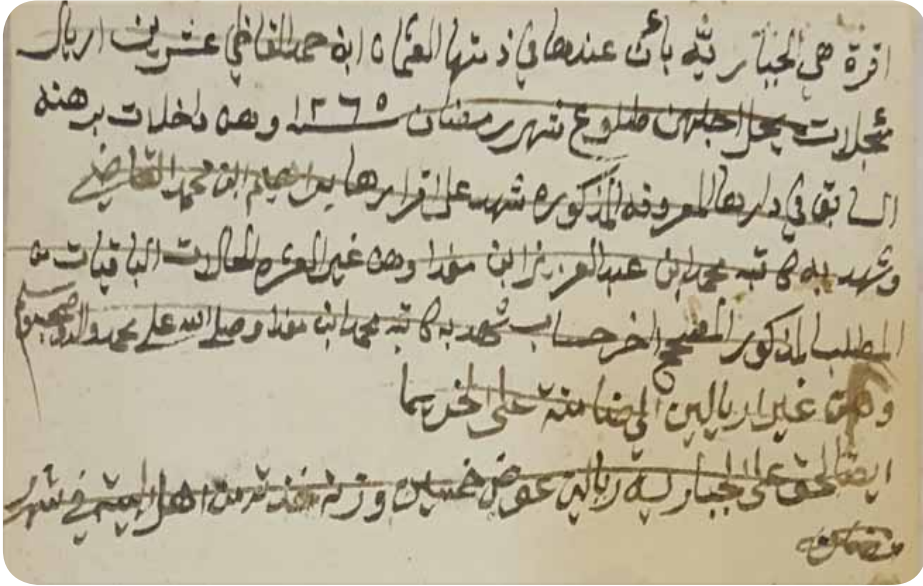 اقرة هي الجبارية بائن عندها في ذمتها العثمان ابن حمد القاضي عشرين اريال
مجلات يحل اجلهن طلوع شهر رمضان ١٢٦٥ وهن داخلات برهنه
السابق في دارها المعروفه المذكوره شهد على اقرارها براهيم ابن محمد القاضي
وشهد به كاتبه محمد ابن عبد العزيز ابن وهن غير العشره الحالات الباقيات من
المطلب المذكور اخر حساب شهد به كاتبه محمد ابن وصلى الله على محمد واله وصحبه وسلم
وهن غير اريالين الي ضامنته على
ايضا لحق على الجباريه ريالين عوض خمسين وزنه من في شهر